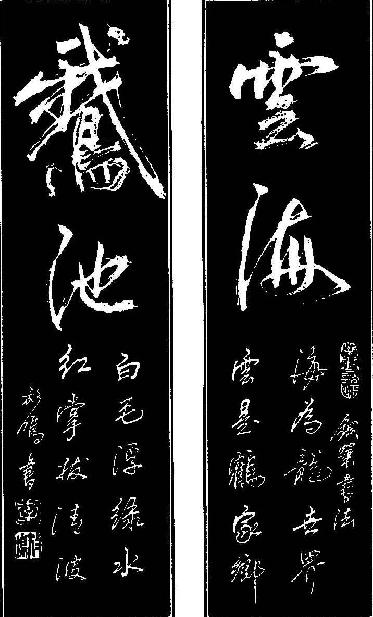 雲海
海為龍世界
雲是鶴家鄉
鵝池
白毛浮綠水
紅掌拨清波